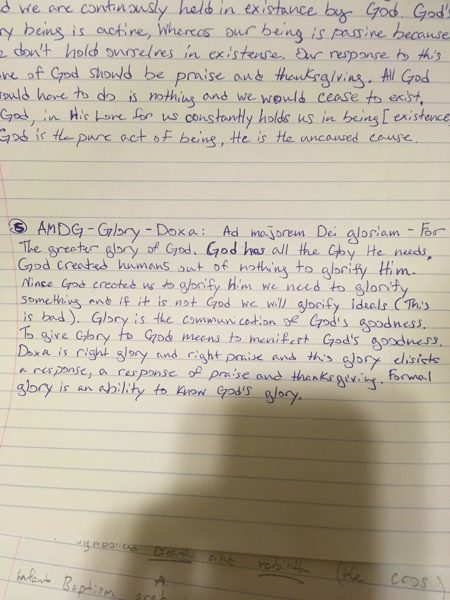 d we are continously held in existance by God. God's
ry being is active, Whereas our being is passive because
don't hold ourselves in existense. Our response to this
ve of God should be praise and thanksgiving. All God
ould have to do is nothing and we would cease to exist.
God, in His Love for us constantly holds us in being [existence
God is the pure act of being, He is the uncaused cause.
⑤ AMDG-Glory-Doxa: Ad majorem Dei gloriam - For
The greater glory of God. God has all the Glory He needs.
God created humans out of nothing to glorify Him.
Since God created us to glorify Him we need to glorify
something and if it is not God we will glorify ideals (This
is bad). Glory is the communication of God's goodness.
To give Glory to God means to menifest God's goodness.
Doxa is right glory and right praise and this glory elisists
a response, a response of praise and thanksgiving. Formal
glory is an ability to know God's glory.
Death and rebirth (the cros)
Infant Baptism